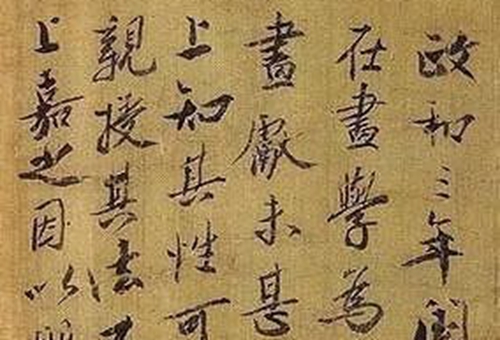 政和三年閏
在畫學為
畫獻未甚
上知其性可
親授其法不
上嘉之因以